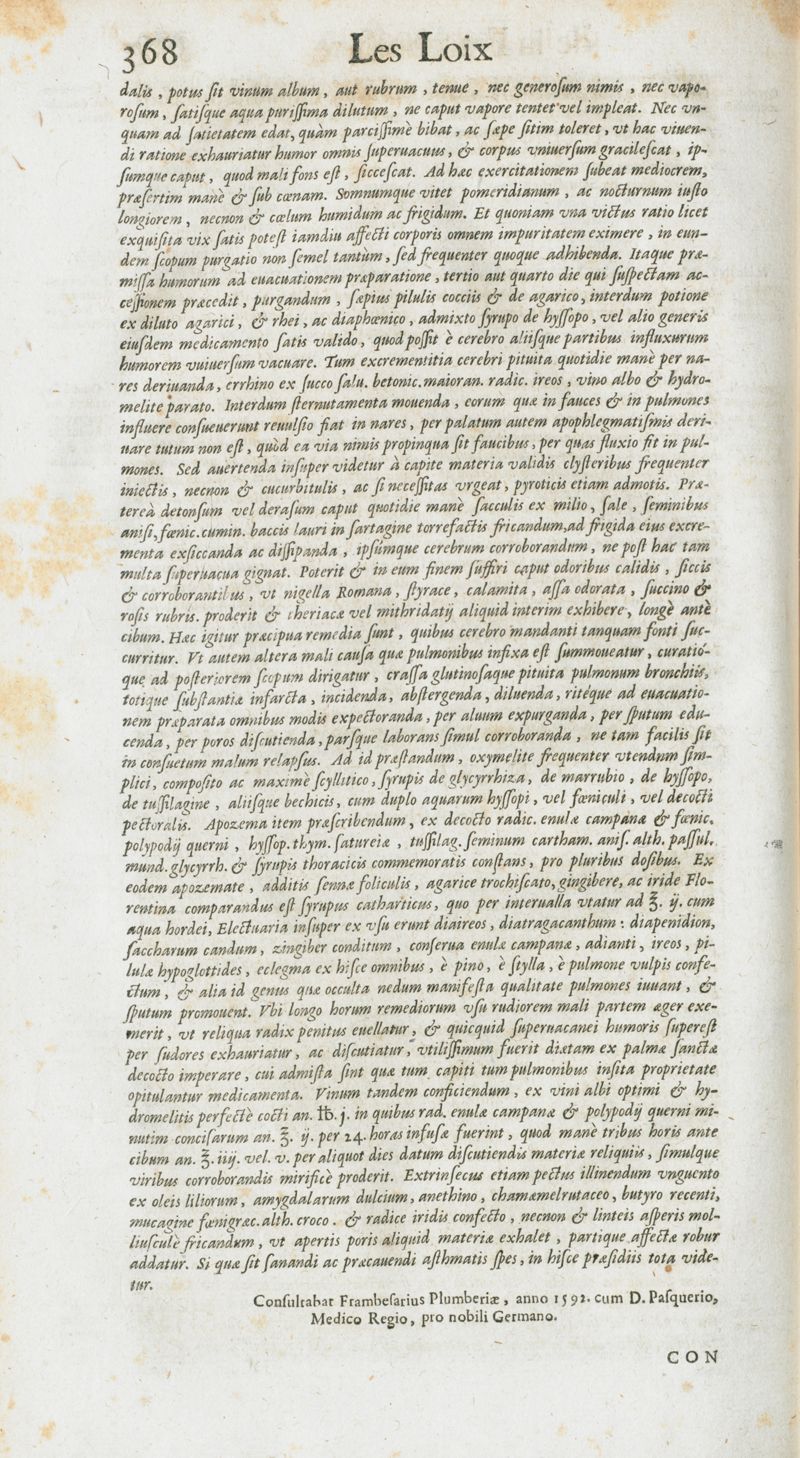 368 Les Loix
dalis, potus ſit vinum album, aut rubrum, tenue, nec generoſum nimis, nec vapo-
roſum, ſatiſque aqua puriſſima dilutum, ne caput vapore tentet vel impleat. Nec vn-
quam ad ſatietatem edat, quàm parciſſimè bibat, ac ſæpe ſitim toleret, vt hac viuen-
di ratione exhauriatur humor omnis ſuperuacuus, & corpus vniuerſum gracileſcat, ip-
ſumque caput, quod mali fons eſt, ſicceſcat. Ad hæc exercitationem ſubeat mediocrem,
præſertim manè & ſub cœnam. Somnumque vitet pomeridianum, ac nocturnum iuſto
longiorem, necnon & cœlum humidum ac frigidum. Et quoniam vna victus ratio licet
exquiſita vix ſatis poteſt iamdiu affecti corporis omnem impuritatem eximere, in eun-
dem ſcopum purgatio non ſemel tantùm, ſed frequenter quoque adhibenda. Itaque præ-
miſſa humorum ad euacuationem præparatione, tertio aut quarto die qui ſuſpectam ac-
ceſſionem præcedit, purgandum, ſæpius pilulis cocciis & de agarico, interdum potione
ex diluto agarici, & rhei, ac diaphœnico, admixto ſyrupo de hyſſopo, vel alio generis
eiuſdem medicamento ſatis valido, quod poſſit è cerebro aliiſque partibus influxurum
humorem vuiuerſum vacuare. Tum excrementitia cerebri pituita quotidie manè per na-
res deriuanda, errhino ex ſucco ſalu. betonic. maioran. radic. ireos, vino albo & hydro-
melite parato. Interdum ſternutamenta mouenda, eorum quæ in fauces & in pulmones
influere conſueuerunt reuulſio fiat in nares, per palatum autem apophlegmatiſmis deri-
uare tutum non eſt, quòd ea via nimis propinqua ſit faucibus, per quas fluxio fit in pul-
mones. Sed auertenda inſuper videtur à capite materia validis clyſteribus frequenter
iniectis, necnon & cucurbitulis, ac ſi neceſſitas vrgeat, pyroticis etiam admotis. Præ-
tereà detonſum vel deraſum caput quotidie manè ſacculis ex milio, ſale, ſeminibus
aniſi, fœnic. cumin. baccis lauri in ſartagine torrefactis fricandum, ad frigida eius excre-
menta exſiccanda ac diſſipanda, ipſúmque cerebrum corroborandum, ne poſt hac tam
multa ſuperuacua gignat. Poterit & in eum finem ſuffiri caput odoribus calidis, ſiccis
& corroborantibus, vt nigella Romana, ſtyrace, calamita, aſſa odorata, ſuccino &
roſis rubris. proderit & theriacæ vel mithridatij aliquid interim exhibere, longè antè
cibum. Hæc igitur præcipua remedia ſunt, quibus cerebro mandanti tanquam fonti ſuc-
curritur. Vt autem altera mali cauſa quæ pulmonibus infixa eſt ſummoueatur, curatió-
que ad poſteriorem ſcopum dirigatur, craſſa glutinoſaque pituita pulmonum bronchiis,
totique ſubſtantiæ infarcta, incidenda, abſtergenda, diluenda, ritéque ad euacuatio-
nem præparata omnibus modis expectoranda, per aluum expurganda, per ſputum edu-
cenda, per poros diſcutienda, parſque laborans ſimul corroboranda, ne tam facilis ſit
in conſuetum malum relapſus. Ad id præſtandum, oxymelite frequenter vtendum ſim-
plici, compoſito ac maximè ſcyllitico, ſyrupis de glycyrrhiza, de marrubio, de hyſſopo,
de tuſſilagine, aliiſque bechicis, cum duplo aquarum hyſſopi, vel fœniculi, vel decocti
pectoralis. Apozema item præſcribendum, ex decocto radic. enulæ campanæ & fœnic.
polypodij querni, hyſſop. thym. ſatureiæ, tuſſilag. ſeminum cartham. aniſ. alth. paſſul.
mund. glycyrrh. & ſyrupis thoracicis commemoratis conſtans, pro pluribus doſibus. Ex
eodem apozemate, additis ſennæ foliculis, agarice trochiſcato, gingibere, ac iride Flo-
rentina comparandus eſt ſyrupus catharticus, quo per interualla vtatur ad ℥. ij. cum
aqua hordei, Electuaria inſuper ex vſu erunt diaireos, diatragacanthum: diapenidion,
ſaccharum candum, zingiber conditum, conſerua enulæ campanæ, adianti, ireos, pi-
lulæ hypoglottides, eclegma ex hiſce omnibus, è pino, è ſtylla, è pulmone vulpis confe-
ctum, & alia id genus quæ occulta nedum manifeſta qualitate pulmones iuuant, &
ſputum promouent. Vbi longo horum remediorum vſu rudiorem mali partem æger exe-
merit, vt reliqua radix penitus euellatur, & quicquid ſuperuacanei humoris ſupereſt
per ſudores exhauriatur, ac diſcutiatur, vtiliſſimum fuerit diætam ex palmæ ſanctæ
decocto imperare, cui admiſta ſint quæ tum capiti tum pulmonibus inſita proprietate
opitulantur medicamenta. Vinum tandem conficiendum, ex vini albi optimi & hy-
dromelitis perfectè cocti an. ℔. j. in quibus rad. enulæ campanæ & polypodij querni mi-
nutim conciſarum an. ℥. ij. per 24. horas infuſæ fuerint, quod manè tribus horis ante
cibum an. ℥. iiij. vel. v. per aliquot dies datum diſcutiendis materiæ reliquiis, ſimulque
viribus corroborandis mirificè proderit. Extrinſecus etiam pectus illinendum vnguento
ex oleis liliorum, amygdalarum dulcium, anethino, chamæmelrutaceo, butyro recenti,
mucagine fœnigræc. alth. croco. & radice iridis confecto, necnon & linteis aſperis mol-
liuſculè fricandum, vt apertis poris aliquid materiæ exhalet, partique affectæ robur
addatur. Si quæ ſit ſanandi ac præcauendi aſthmatis ſpes, in hiſce præſidiis tota vide-
tur.
Conſultabat Frambeſarius Plumberiæ, anno 1592. cum D. Paſquerio,
Medico Regio, pro nobili Germano.
CON